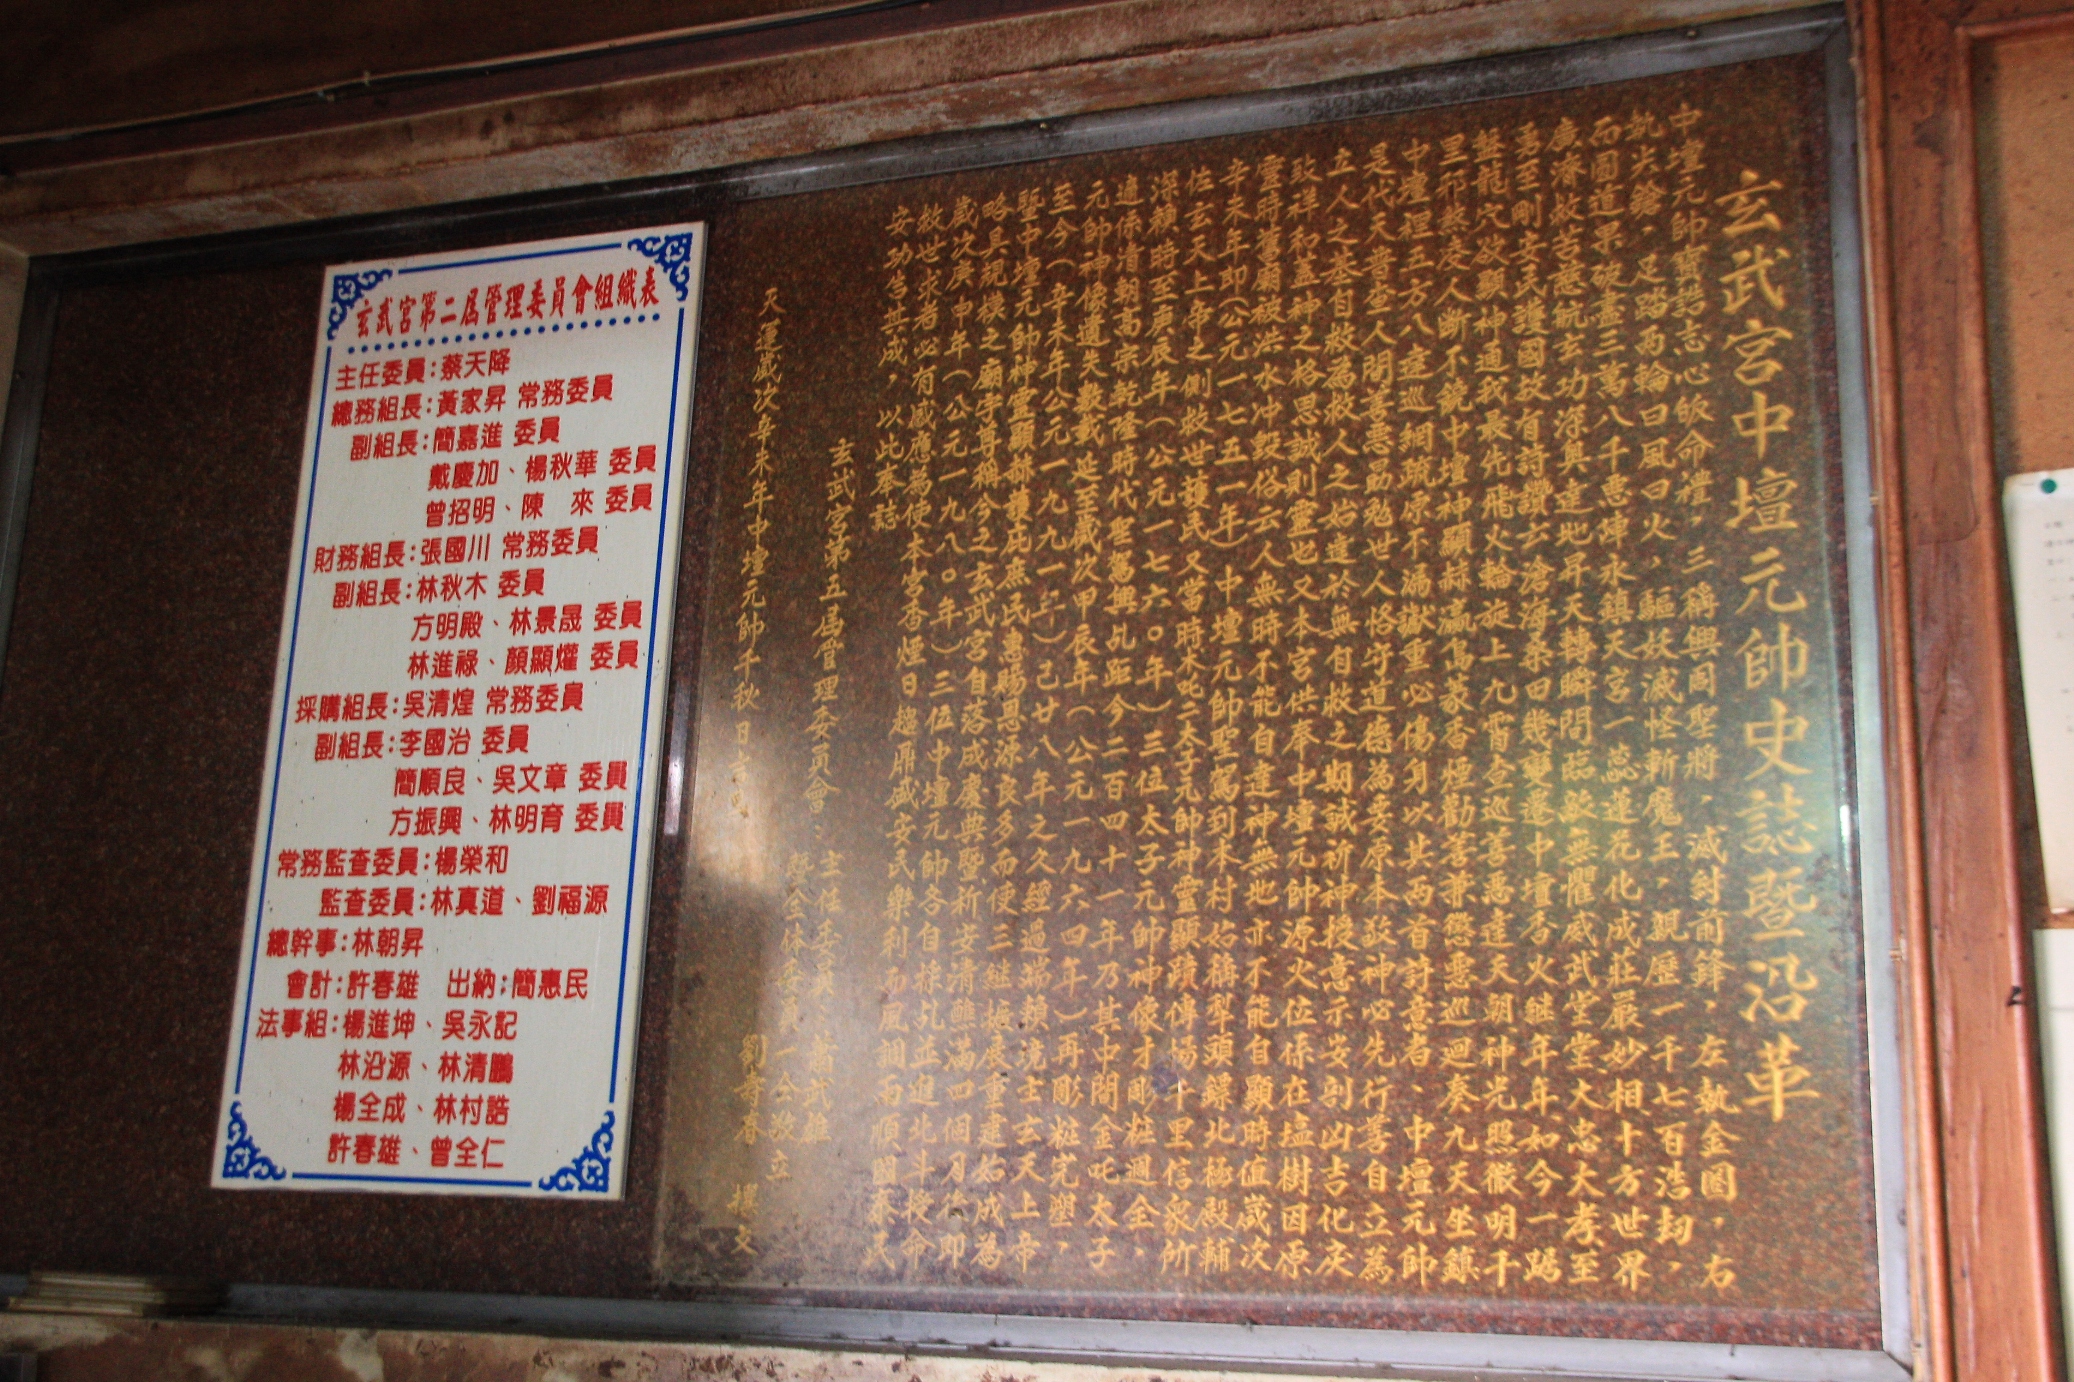 玄武宮中壇元帥史誌暨沿革
中壇元帥寶誥志心皈命禮，三稱興周聖將，滅紂前鋒，左執金圈，右
執尖鎗，足踏兩輪曰風曰火，驅妖滅怪斬魔王，親歷一千七百浩劫，
而圓道果破盡三萬八千惡陣水鎮天宮一蕊蓮花化成莊嚴妙相十方世界
廣濟救苦慈統玄功深奧達地昇天轉瞬間臨欽無懼威武堂堂大忠大孝至
勇至剛安民護國故有詩讚云滄海桑田幾變遷中壇香火繼年年如今一踞
盤龍穴欲顯神通我最先飛火輪旋上九霄查巡善惡達天朝神光照徹明千
里邪煞反人斷不饒中壇神顯赫瀛寓篆香煙勸善兼懲惡巡迴奏九天坐鎮
中壇理五方八達巡網疏原不漏嶽重必傷身以其兩首討意者、中壇元帥
是代天查人間善惡勗勉世人恪守道德為要原本敬神必先行善自立為
立人之本自救為救人之始達於無自救之期誠祈神授意示安剖凶吉化戾
致祥和蓋神之格思誠則靈也又本宮供奉中壇元帥源火位係在塩樹因原
靈時舊廟被洪水冲毀俗云人無時不能自達神無地亦不能自顯時值歲次
辛未年即(公元一七五一年)中壇元帥聖駕到本村始稱犁頭鏢北極殿輔
佐玄天上帝之側救世護民又當時木吒二太子元帥神靈顯蹟傳揚十里信眾所
深賴時至庚辰年(公元一七六〇年)三位太子元帥神像才彫粧週全，
遠係清朝高宗乾隆時代聖駕興乩距今二百四十一年乃其中間金吒太子
元帥神像遺失數載延至歲次甲辰年(公元一九六四年)再彫粧完塑，
至今(辛未年公元一九九一年)己廿八年之久經過端賴境主玄天上帝
暨中壇元帥神靈顯赫護庇庶民惠賜恩源良多而使三繼振展重建始成為
略具規模之廟宇尊稱今之玄武宮自落成慶典暨祈安清醮滿四個月後即
歲次庚申年(公元一九八〇年)三位中壇元帥各自採乩並迎斗授命
救世求者必有感應為使本宮香煙日趨鼎盛安民樂利而風調雨順國泰民
安功告其成，以此奉誌
玄武宮第五屆管理委員會：主任委員
暨全体委員一全敬立
天運歲次辛未年中壇元帥千秋日 劉 春 撰文
玄武宮第二屆管理委員會組織表
主任委員：蔡天降
總務組長：黃家昇 常務委員
副組長：簡嘉進 委員
戴慶加、楊秋華 委員
曾招明、陳　來 委員
財務組長：張國川 常務委員
副組長：林秋木 委員
方明殿、林景晟 委員
林進祿、顏顯爟 委員
採購組長：吳清煌 常務委員
副組長：李國治 委員
簡順良、吳文章 委員
方振興、林明育 委員
常務監查委員：楊榮和
監查委員：林真道、劉福源
總幹事：林朝昇
會計：許春雄　出納；簡惠民
法事組：楊進坤、吳永記
林沿源、林清鵬
楊全成、林村誥
許春雄、曾全仁